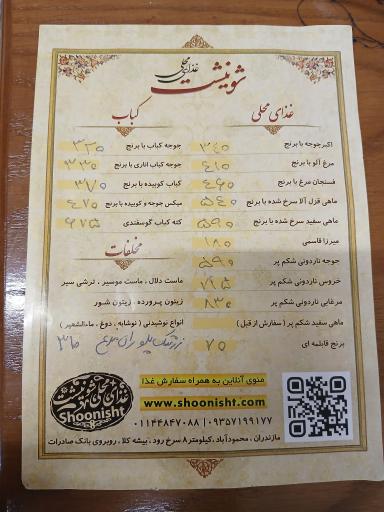 غذای محلی
شونیشت
غذای محلی
اکبرجوجه با برنج ۳۴۵
مرغ آلو با برنج ۴۱۵
فسنجان مرغ با برنج ۴۶۵
ماهی قزل آلا سرخ شده با برنج ۵۴۵
ماهی سفید سرخ شده با برنج ۵۹۵
میرزا قاسمی ۱۸۵
جوجه ناردونی شکم پر ۵۹۵
خروس ناردونی شکم پر
مرغابی ناردونی شکم پر ۸۳۵
ماهی سفید شکم پر ( سفارش از قبل )
برنج قابلمه ای ۷۵
کباب
جوجه کباب با برنج ۳۲۵
جوجه کباب اناری با برنج ۳۳۵
کباب کوبیده با برنج ۳۷۵
میکس جوجه و کوبیده با برنج ۴۷۵
کته کباب گوسفندی ۶۷۵
مخلفات
ماست دلال ، ماست موسیر ، ترشی سیر
زیتون پرورده ، زیتون شور
انواع نوشیدنی ( نوشابه ، دوغ ، ماءالشعیر )
زرشک پلو ران مرغ
غذای محلی شونیشت
Shoonisht
منوی آنلاین به همراه سفارش غذا
www.shoonisht.com
۰۱۱۴۴۸۴۷۰۸۸ | ۰۹۳۵۷۱۹۹۱۷۷
مازندران ، محمودآباد ، کیلومتر ۸ سرخ رود ، بیشه کلا ، روبروی بانک صادرات